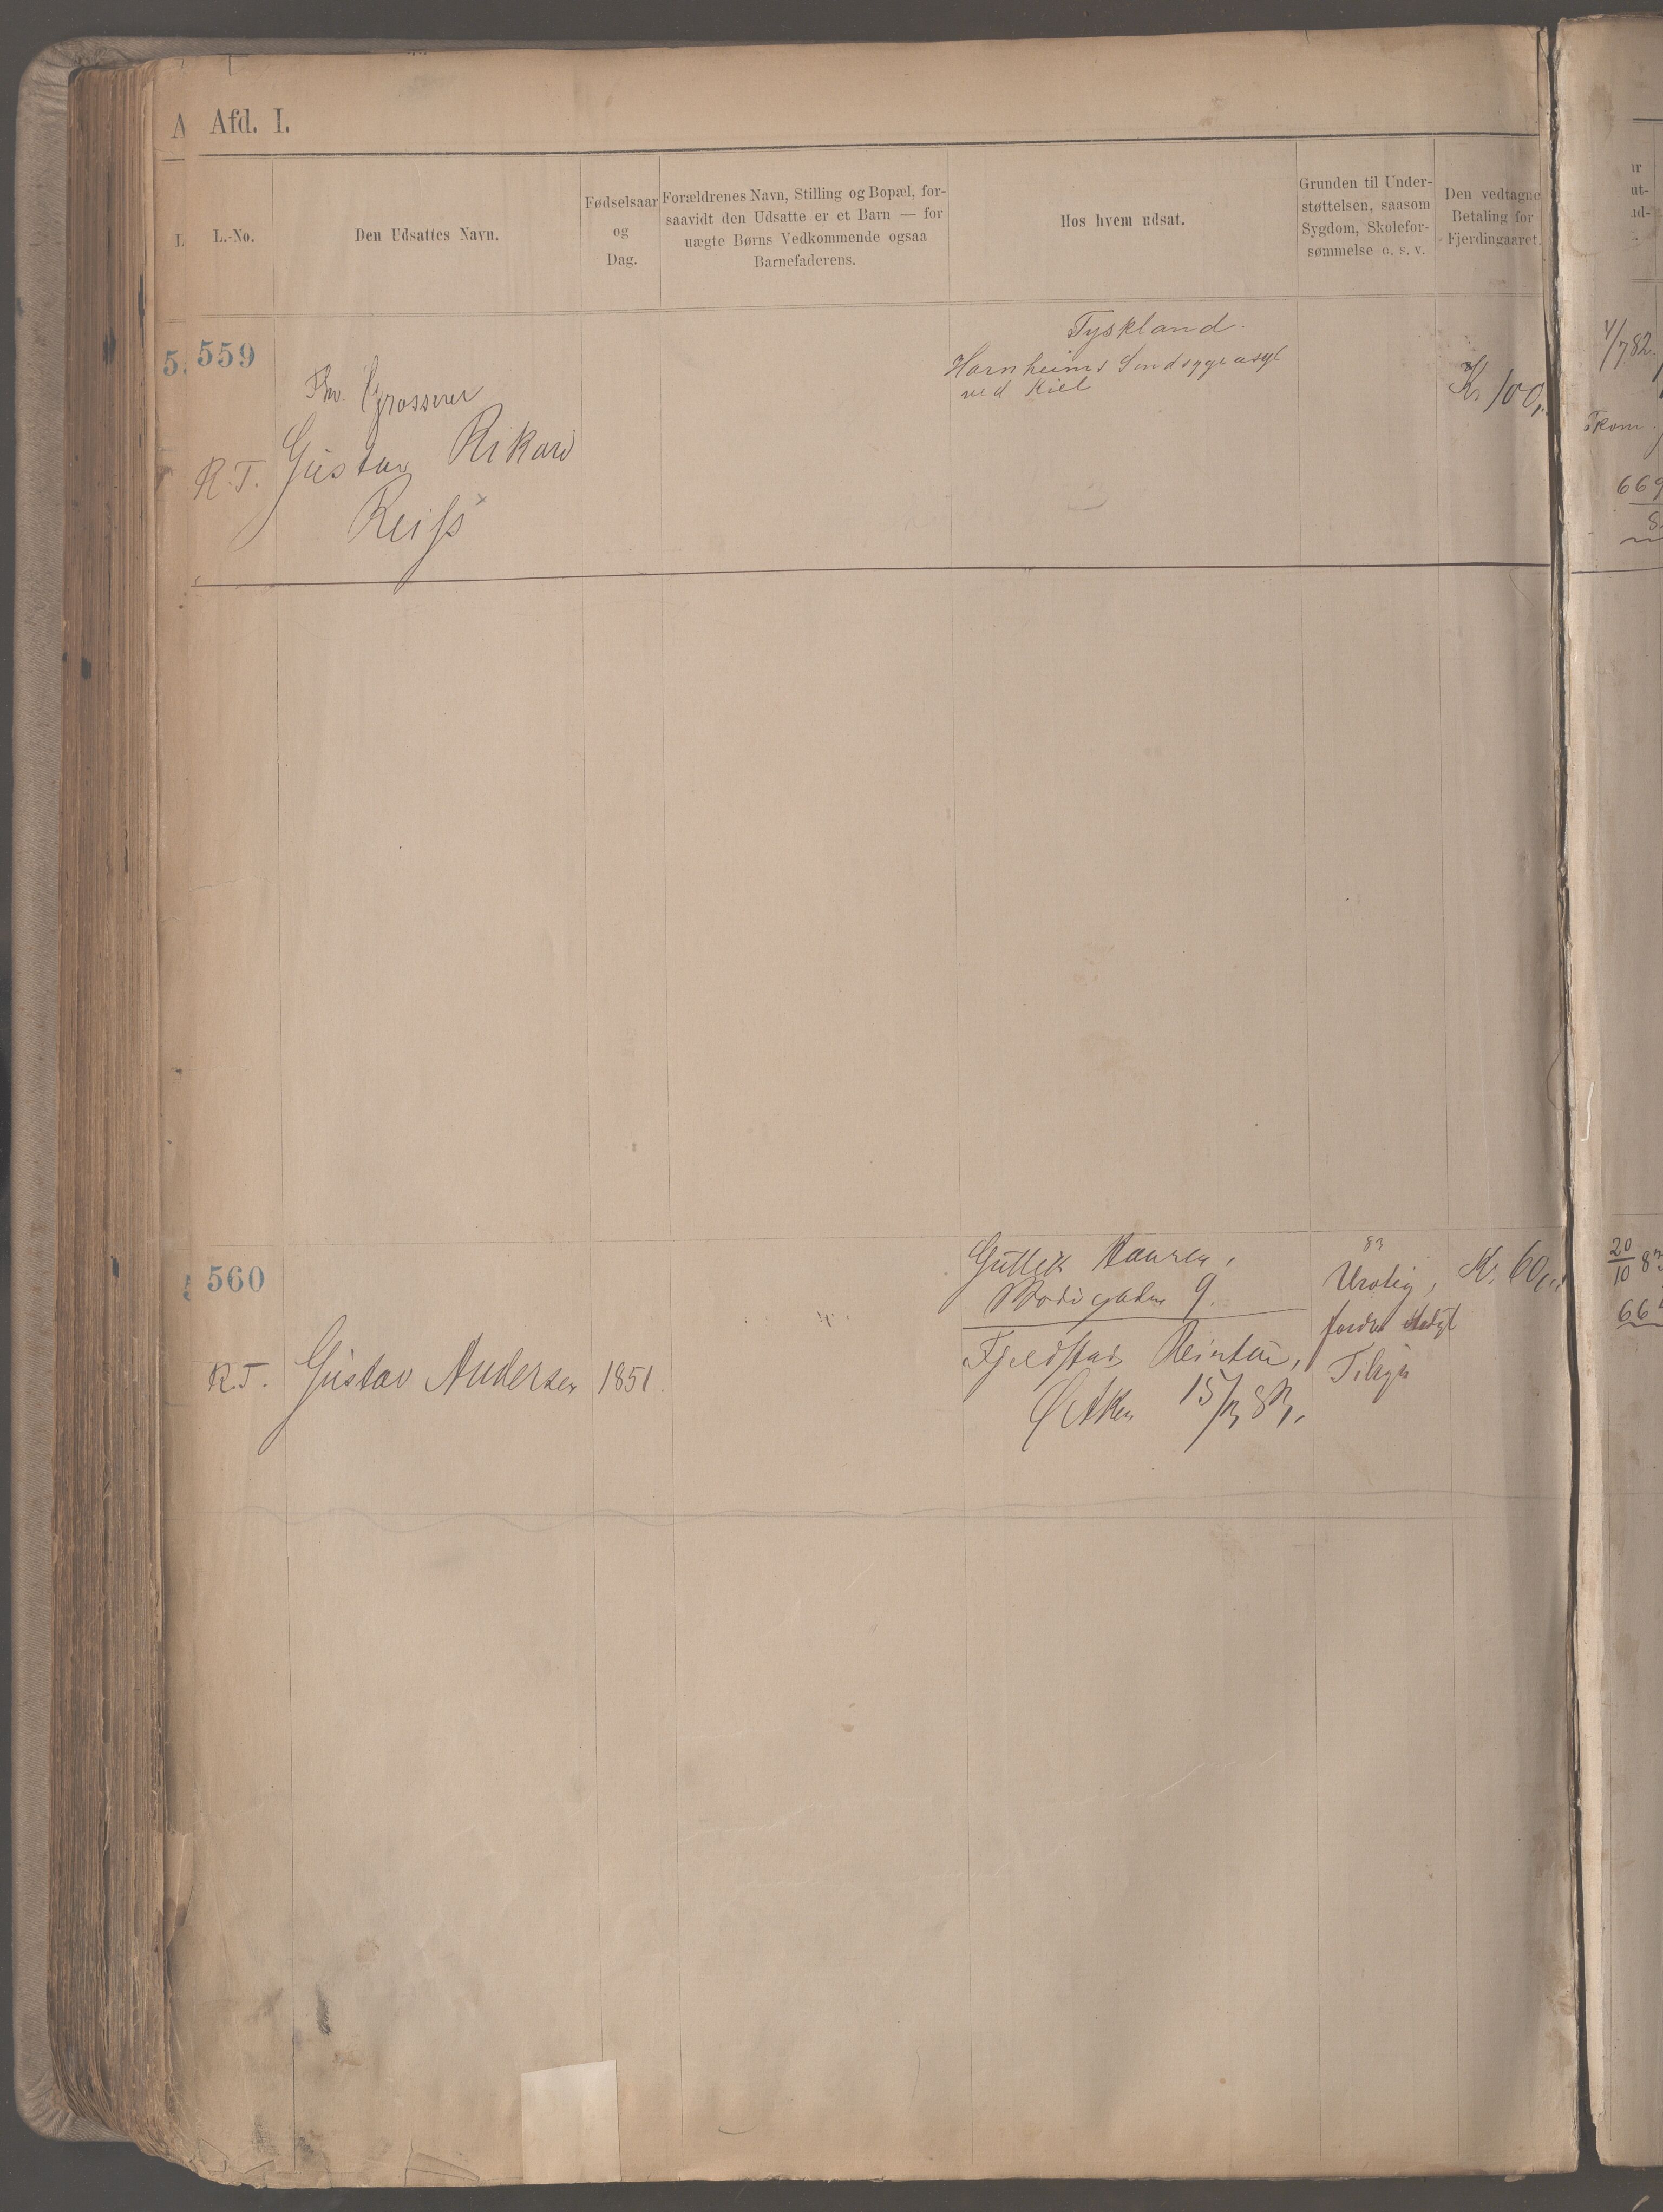 Afd. I.
L.-No.
Den Udsattes Navn.
Fødselsaar
og
Dag.
Forældrenes Navn, Stilling og Bopæl, for-
saavidt den Udsatte er et Barn — for
uægte Børns Vedkommende ogsaa
Barnefaderens.
Hos hvem udsat.
Grunden til Under-
støttelsen, saasom
Sygdom, Skolefor-
sømmelse o. s. v.
Den vedtagne
Betaling for
Fjerdingaaret.
559
R. T.
Fhv. Grosserer
Gustav Rikard
Reiss
Tyskland.
Hornheims Sindsygeasyl
ved Kiel
Kr 100,
4/782.
669
560
R. T.
Gustav Andersen
1851.
Gullik Hansen,
9.
Fjeldstad
Ø Aker 15/
83
Urolig,
fordrer stadigt
Tilsyn
Kr. 60,
20/10 83
66